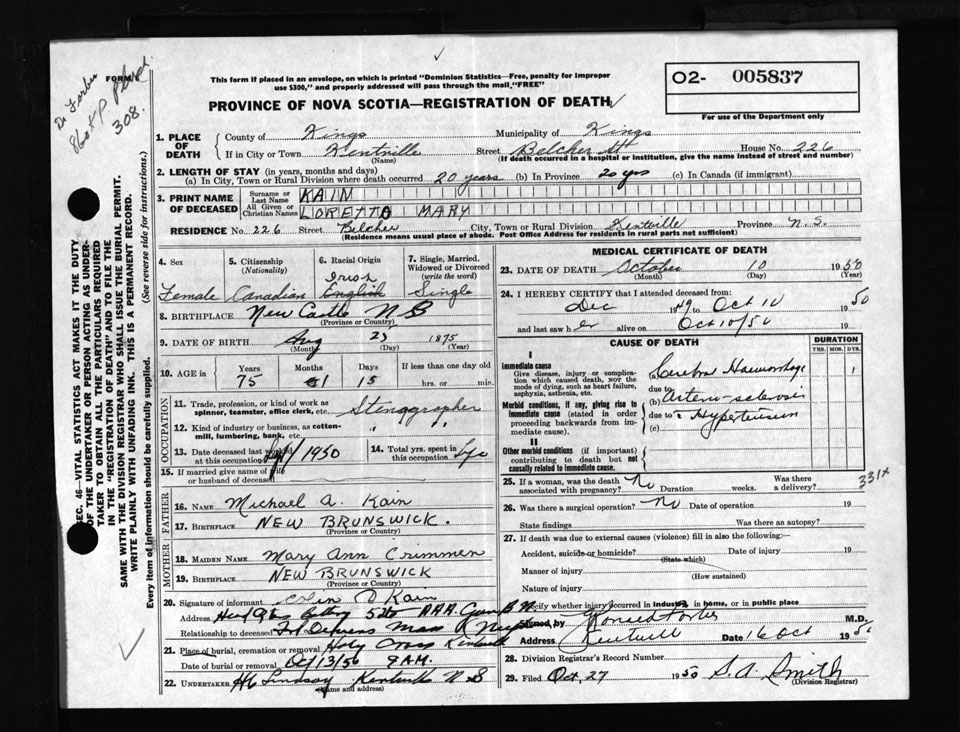 Dr Forbes
FORM
308.
This form if placed in an envelope, on which is printed "Dominion Statistics—Free, penalty for improper
use $300," and properly addressed will pass through the mail "FREE"
PROVINCE OF NOVA SCOTIA—REGISTRATION OF DEATH
O2- 005837
For use of the Department only
1. PLACE OF DEATH
County of Kings Municipality of Kings
If in City or Town Kentville Street Belcher St House No. 226
(Name) (If death occurred in a hospital or institution, give the name instead of street and number)
2. LENGTH OF STAY (in years, months and days)
(a) In City, Town or Rural Division where death occurred 20 years (b) In Province 20 yrs (c) In Canada (if immigrant)
3. PRINT NAME OF DECEASED
Surname or Last Name KAIN
All Given or Christian Names LORETTA MARY
RESIDENCE No. 226 Street Belcher City, Town or Rural Division Kentville Province N.S.
(Residence means usual place of abode. Post Office Address for residents in rural parts not sufficient)
4. Sex 5. Citizenship (Nationality) 6. Racial Origin 7. Single, Married, Widowed or Divorced (write the word)
Irish
Female Canadian English Single
8. BIRTHPLACE New Castle N B
(Province or Country)
9. DATE OF BIRTH Aug 25 1875
(Month) (Day) (Year)
10. AGE in Years Months Days If less than one day old
75 1 15 hrs. or min.
OCCUPATION
11. Trade, profession, or kind of work as spinner, teamster, office clerk, etc. Stenographer
12. Kind of industry or business, as cotton-mill, lumbering, bank, etc. " "
13. Date deceased last worked at this occupation 1950
14. Total yrs. spent in this occupation Life
15. If married give name of wife or husband of deceased
FATHER
16. NAME Michael A. Kain
17. BIRTHPLACE NEW BRUNSWICK.
(Province or Country)
MOTHER
18. MAIDEN NAME Mary Ann Crimmen
19. BIRTHPLACE NEW BRUNSWICK
(Province or Country)
20. Signature of informant Colin D Kain
Address
Relationship to deceased
21. Place of burial, cremation or removal Holy Cross Kentville
Date of burial or removal Oct/13/50 9 A.M.
22. UNDERTAKER Lindsay Kentville N S
(Name and address)
MEDICAL CERTIFICATE OF DEATH
23. DATE OF DEATH October 10 1950
(Month) (Day) (Year)
24. I HEREBY CERTIFY that I attended deceased from:
Dec 1949 Oct 10 1950
and last saw her alive on Oct 10/50 19
CAUSE OF DEATH DURATION
YRS. MOS. DYS.
I
Immediate cause
Give disease, injury or complication which caused death, NOT the mode of dying, such as heart failure, asphyxia, asthenia, etc.
(a) Cerebral Haemorrhage 1
due to
Morbid conditions, if any, giving rise to immediate cause (stated in order proceeding backwards from immediate cause).
(b) Arterio-sclerosis
due to Hypertension
(c)
II
Other morbid conditions (if important) contributing to death but not causally related to immediate cause.
331x
25. If a woman, was the death associated with pregnancy? No Duration weeks. Was there a delivery?
26. Was there a surgical operation? No Date of operation 19
State findings Was there an autopsy?
27. If death was due to external causes (violence) fill in also the following:
Accident, suicide or homicide? Date of injury 19
(State which)
Manner of injury
(How sustained)
Nature of injury
Specify whether injury occurred in industry, in home, or in public place
Signed by Donald Forbes M.D.
Address Kentville Date 16 Oct 1950
28. Division Registrar's Record Number
29. Filed Oct, 27 1950 S. A. Smith
(Division Registrar)
SEC. 46—VITAL STATISTICS ACT MAKES IT THE DUTY
OF THE UNDERTAKER OR PERSON ACTING AS UNDER-
TAKER TO OBTAIN ALL THE PARTICULARS REQUIRED
IN THE "REGISTRATION OF DEATH" AND TO FILE THE
SAME WITH THE DIVISION REGISTRAR WHO SHALL ISSUE THE BURIAL PERMIT.
WRITE PLAINLY WITH UNFADING INK. THIS IS A PERMANENT RECORD.
Every item of information should be carefully supplied. (See reverse side for instructions.)